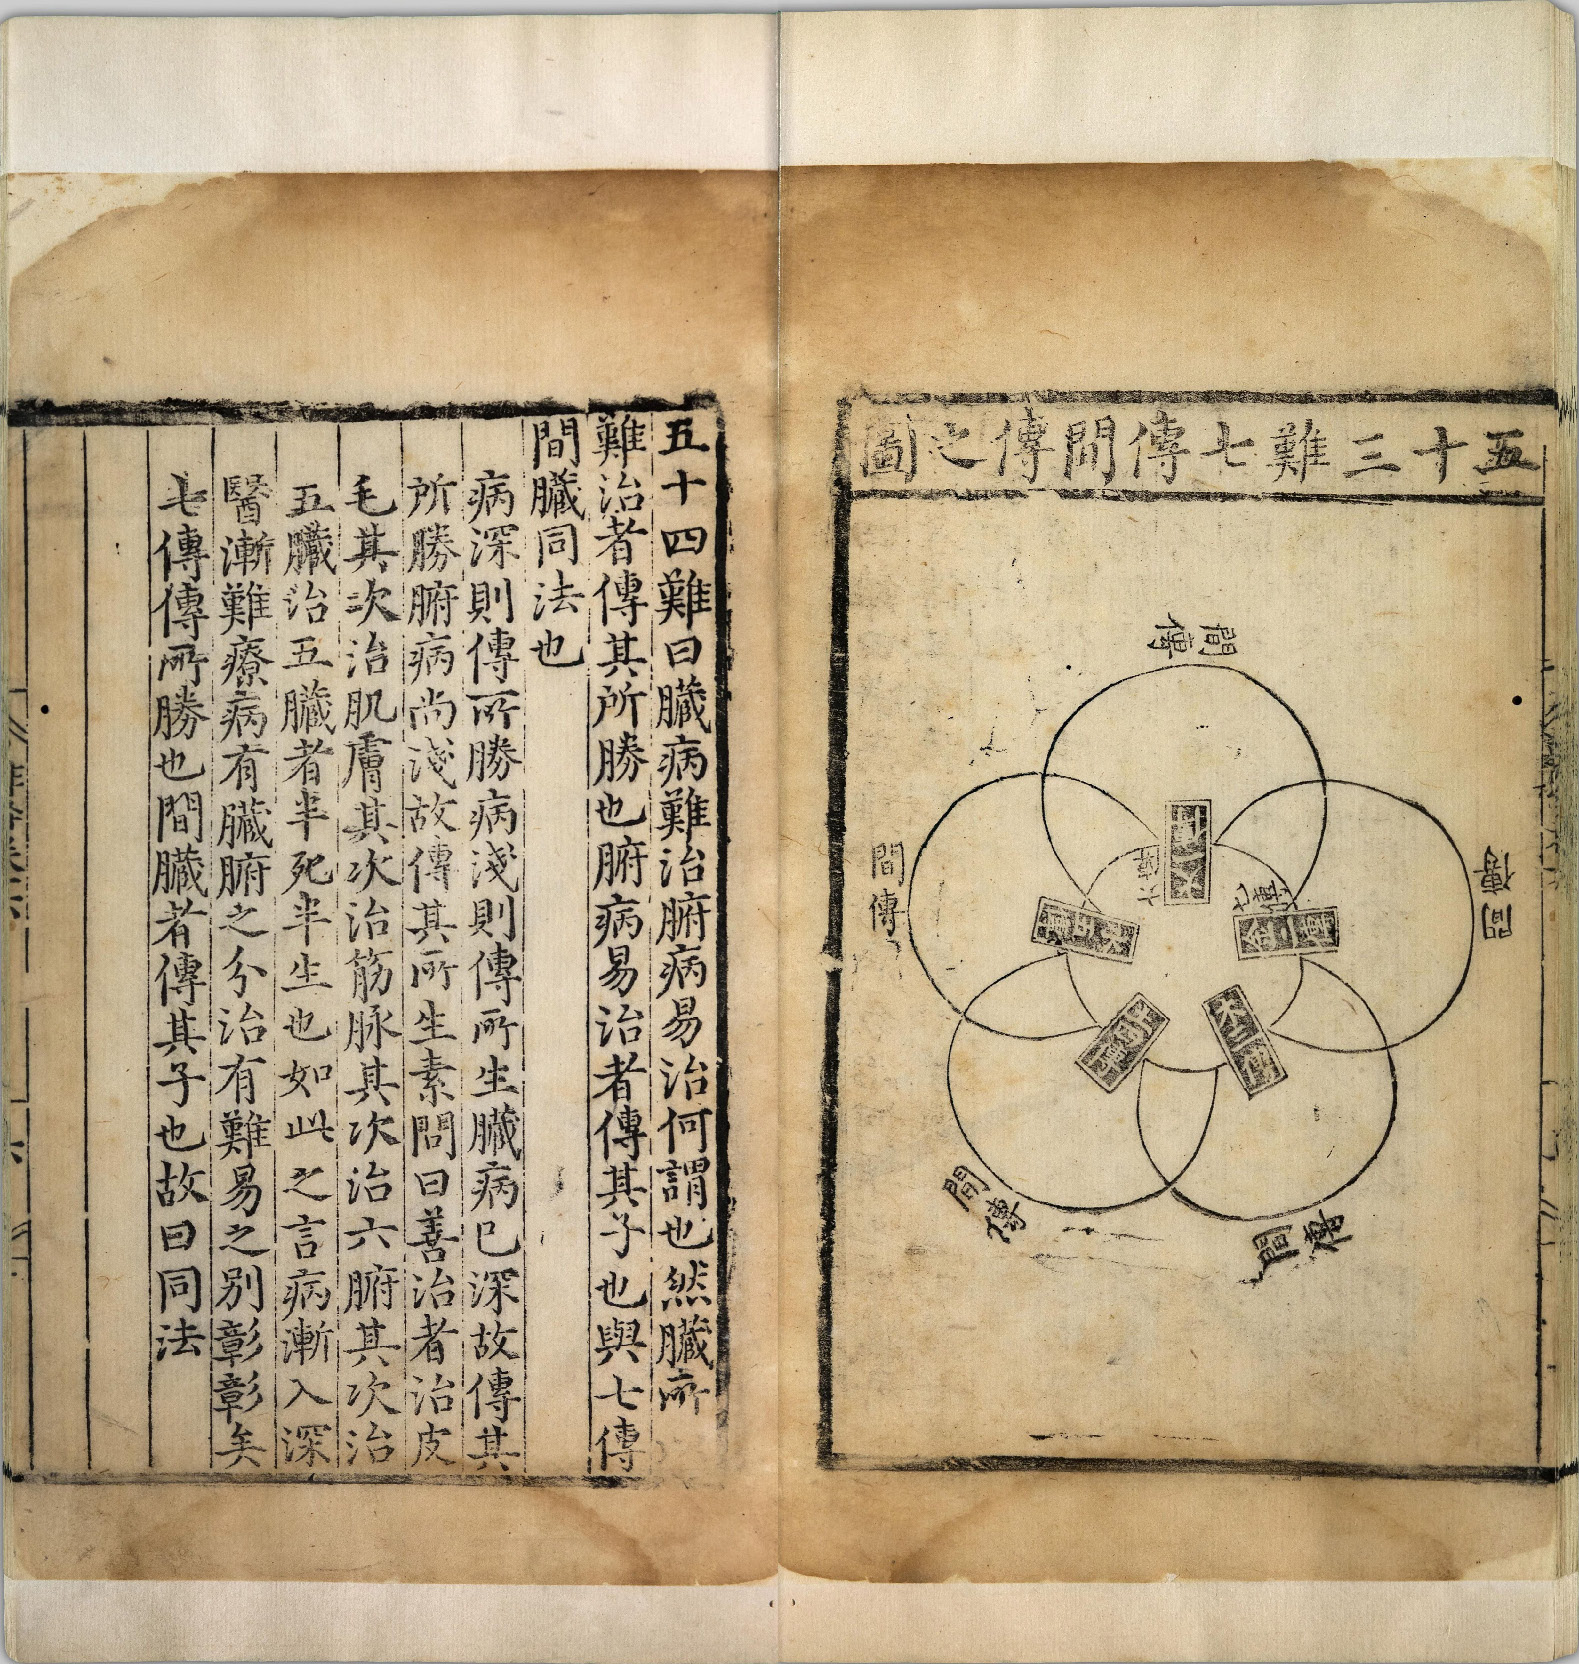 五十三難七傳間傳之圖
間傳
間傳
間傳
間傳
間傳
七傳
五十四難曰臟病難治腑病易治何謂也然臟所
難治者傳其所勝也腑病易治者傳其子也與七傳
間臟同法也
病深則傳所勝病淺則傳所生臟病已深故傳其
所勝腑病尚淺故傳其所生素問曰善治者治皮
毛其次治肌膚其次治筋脉其次治六腑其次治
五臟治五臟者半死半生也如此之言病漸入深
醫漸難療病有臟腑之分治有難易之別彰彰矣
七傳傳所勝也間臟者傳其子也故曰同法